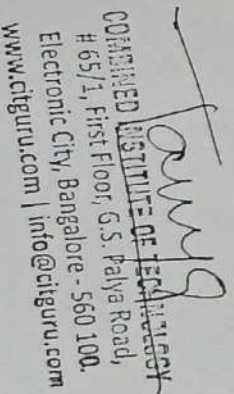 COMBINED INSTITUTE OF TECHNOLOGY
# 65/1, First Floor, G.S. Palya Road,
Electronic City, Bangalore - 560 100.
www.citguru.com | info@citguru.com